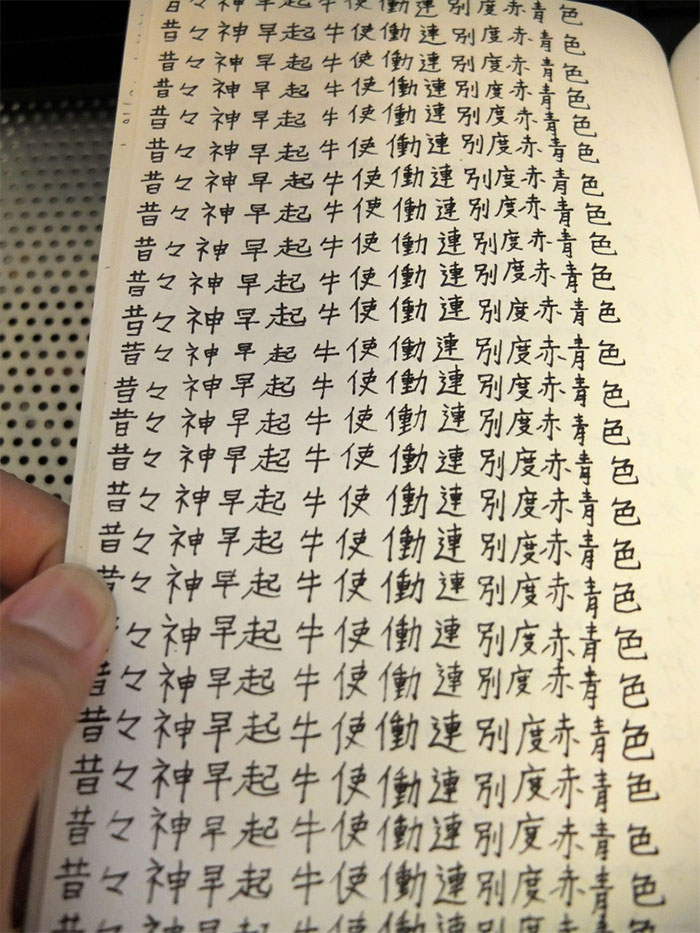 昔々神早起牛使働連別度赤青色
昔々神早起牛使働連別度赤青色
昔々神早起牛使働連別度赤青色
昔々神早起牛使働連別度赤青色
昔々神早起牛使働連別度赤青色
昔々神早起牛使働連別度赤青色
昔々神早起牛使働連別度赤青色
昔々神早起牛使働連別度赤青色
昔々神早起牛使働連別度赤青色
昔々神早起牛使働連別度赤青色
昔々神早起牛使働連別度赤青色
昔々神早起牛使働連別度赤青色
昔々神早起牛使働連別度赤青色
昔々神早起牛使働連別度赤青色
昔々神早起牛使働連別度赤青色
昔々神早起牛使働連別度赤青色
昔々神早起牛使働連別度赤青色
昔々神早起牛使働連別度赤青色
々神早起牛使働連別度赤青色
昔々神早起牛使働連別度赤青色
昔々神早起牛使働連別度赤青色
昔々神早起牛使働連別度赤青色
昔々神早起牛使働連別度赤青色
昔々神早起牛使働連別度赤青色
昔々神早起牛使働連別度赤青